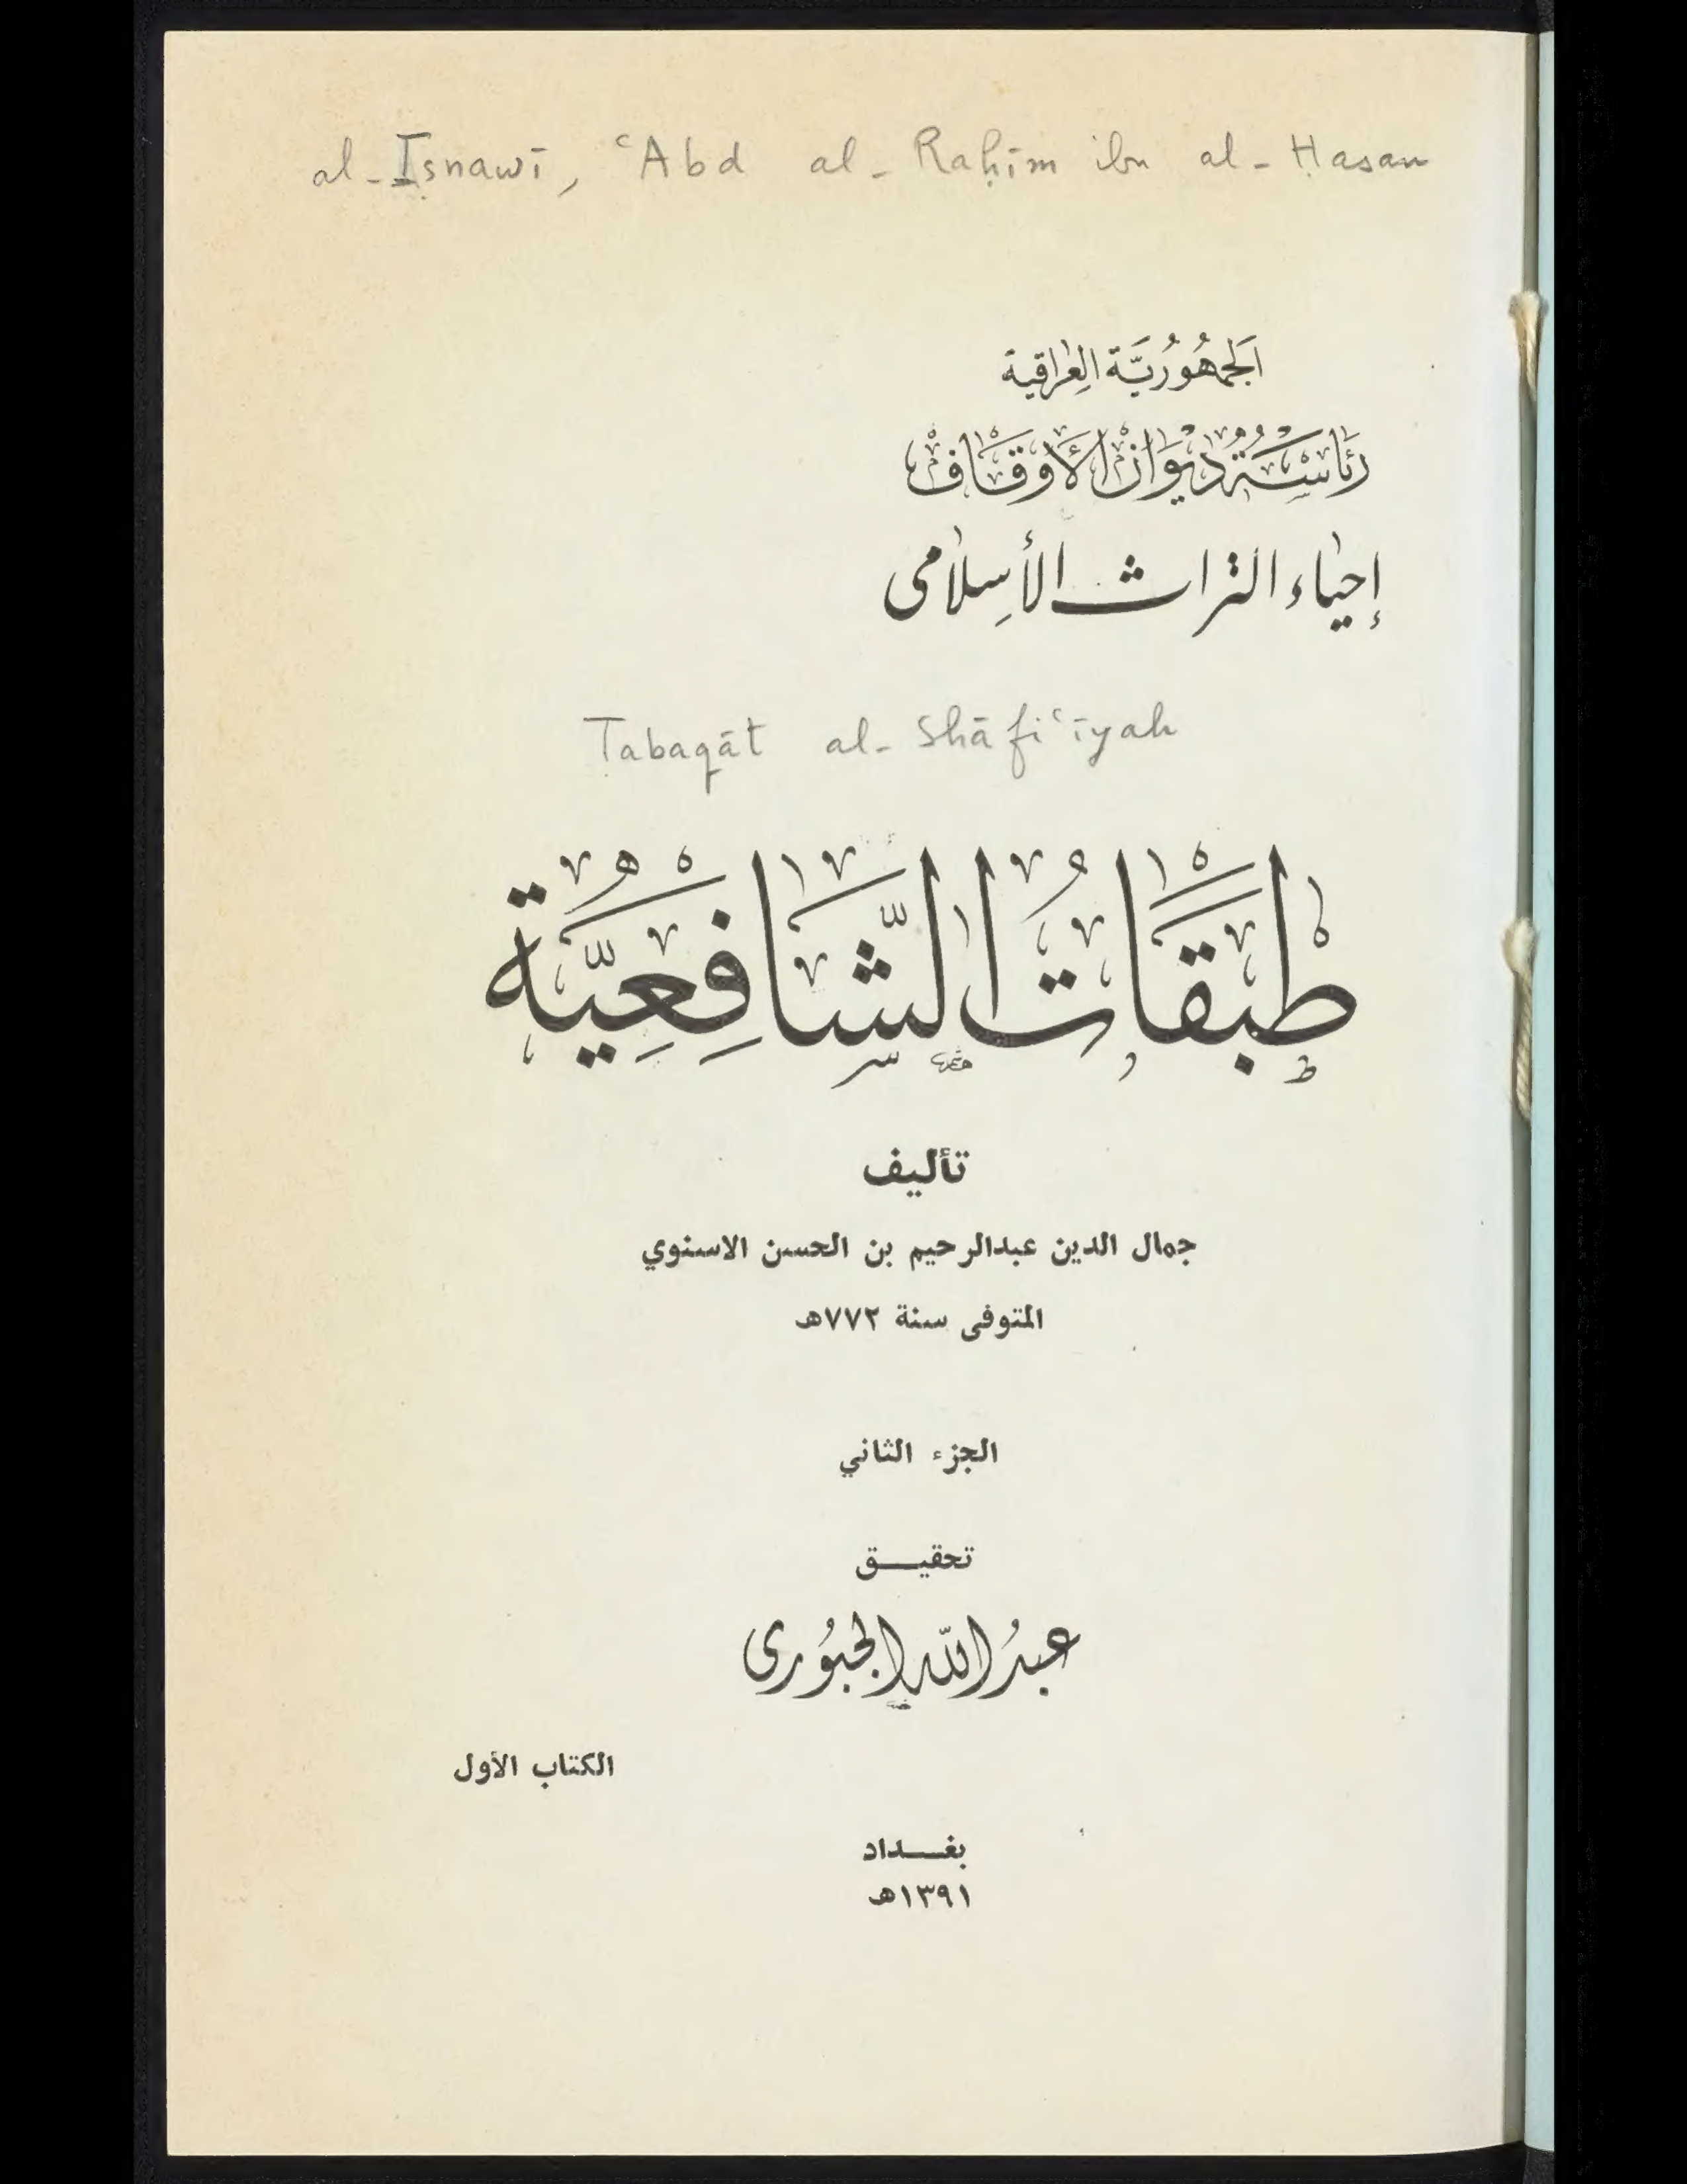 al-Isnawī, ʿAbd al-Raḥīm ibn al-Ḥasan
اَلجَمهُورُيَّة العِراقية
رئَاسَة ديوَان الأوقاف
إحيَاء التراث الأسِلامى
Ṭabaqāt al-Shāfiʿīyah
طَبَقَاتُ الشَّافِعِيَّة
تأليف
جمال الدين عبدالرحيم بن الحسن الاسنوي
المتوفى سنة ٧٧٢هـ
الجزء الثاني
تحقيـــق
عبدُ اللّه الجبُورى
الكتاب الأول
بغـــداد
١٣٩١هـ